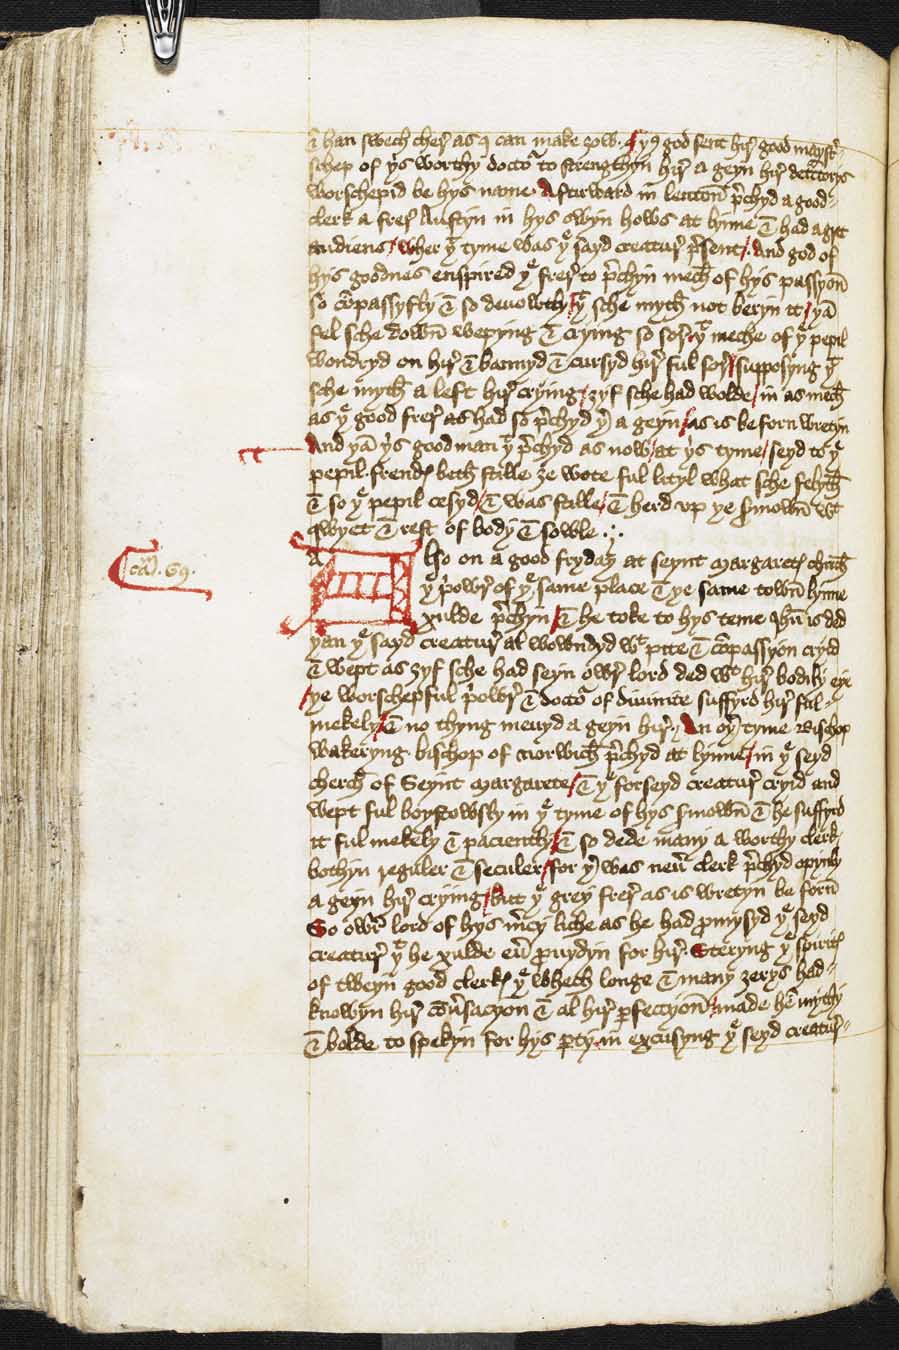 & han swech cher as I can make ȝow. þus god sent hir good maystyr-
schep of þis worthy doctor to strengthyn hir a geyn hir detractorys
worschepid be hys name. Aftirward in lenton prechyd a good
clerk a frer Austyn in hys owyn hows at lynne & had a gret
audiens / wher þat tyme was þe sayd creatur present /. And god of
hys goodnes enspired þe frer to prechyn mech of hys passyon
so compassyfly & so devowtly / þat sche myth not beryn it / þan
fel sche down wepyng & crying so sor / þat meche of þe pepil
wondryd on hir & bannyd & cursyd hir ful sor / supposyng þat
sche myth a left hir crying / ȝyf sche had wolde / in as mech
as þe good frer as had so prechyd þer a geyn / as is beforn wretyn
And þan þis good man þat prechyd as now / at þis tyme / seyd to þe
pepil. frendys beth stille ȝe wote ful lityl what sche felyth
& so þe pepil cesyd / & was stille / & herd up þe sermown wt
qwyet & rest of body & sowle .;.
Cam. 69.
Also on a good fryday at seynt Margaretys cherch
þe prowr of þe same place & þe same town lynne
xulde prechyn / & he toke to hys teme Jhu is ded
þan þe sayd creatur al wowndyd wt pite & compassyon cryid
& wept as ȝyf sche had seyn owr lord ded wt hir bodily eye
/ þe worschepful prowr & doctor of divinite suffyrd hir ful
mekely / & no thyng mevyd a geyn hir. An oþer tyme Bischop
Wakeryng bischop of Norwich prechyd at lynne / in þe seyd
cherch of Seynt Margarete / & þe forseyd creatur cryid and
wept ful boystowsly in þe tyme of hys sermown & he suffyrd
it ful mekely & paciently / & so dede many a worthy clerk,
bothyn reguler & seculer / for þer was never clerk prechyd opynly
a geyn hir crying / but þe grey frer as is wretyn be forn
So owr lord of hys mercy liche as he had promysyd þe seyd
creatur þat he xulde evyr providyn for hir. Steryng þe spiritys
of tweyn good clerkys þe whech longe & many ȝerys had
knowyn hir conversacyon & al hir perfeccyon / made hem mythy
& bolde to spekyn for hys party in excusyng þe seyd creatur